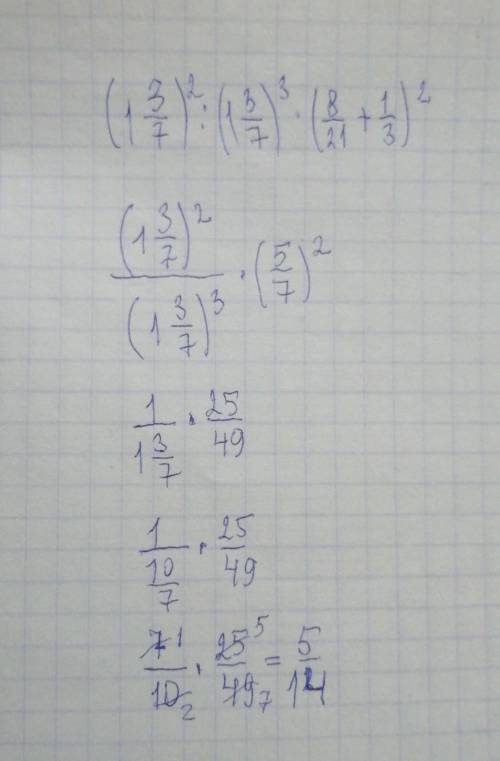 (1 3/7)² : (1 3/7)³ · (8/21 + 1/3)²
(1 3/7)² / (1 3/7)³ · (5/7)²
1 / 1 3/7 · 25/49
1 / 10/7 · 25/49
7 1 / 10 2 · 25 5 / 49 7 = 5/14